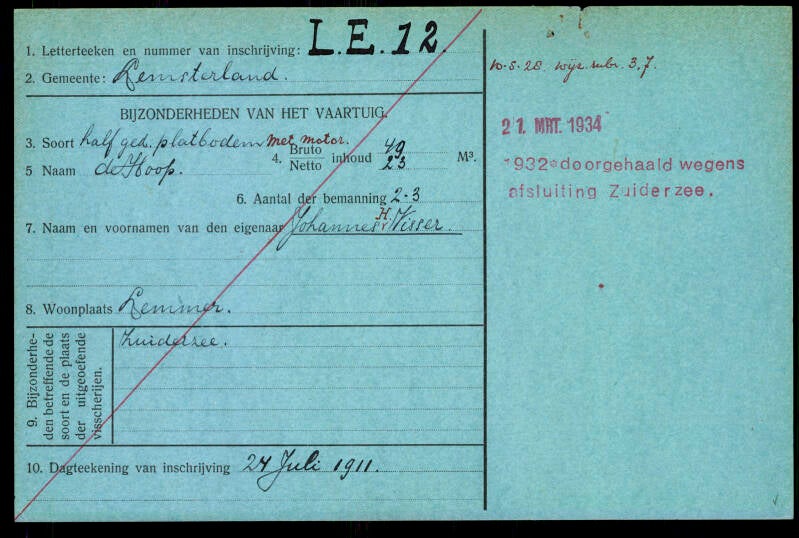 1. Letterteeken en nummer van inschrijving: L.E. 12.
2. Gemeente: Lemsterland.
BIJZONDERHEDEN VAN HET VAARTUIG.
3. Soort half ged. platbodem met motor.
4. Bruto Netto inhoud 49 23 M³.
5 Naam de Hoop.
6. Aantal der bemanning 2-3
7. Naam en voornamen van den eigenaar Johannes H. Visser.
8. Woonplaats Lemmer.
9. Bijzonderhe-
den betreffende de
soort en de plaats
der uitgeoefende
visscherijen.
Zuiderzee.
10. Dagteekening van inschrijving 24 Juli 1911.
W.S. 28. wijz. rubr. 3.7.
21 MRT. 1934
"932" doorgehaald wegens
afsluiting Zuiderzee.